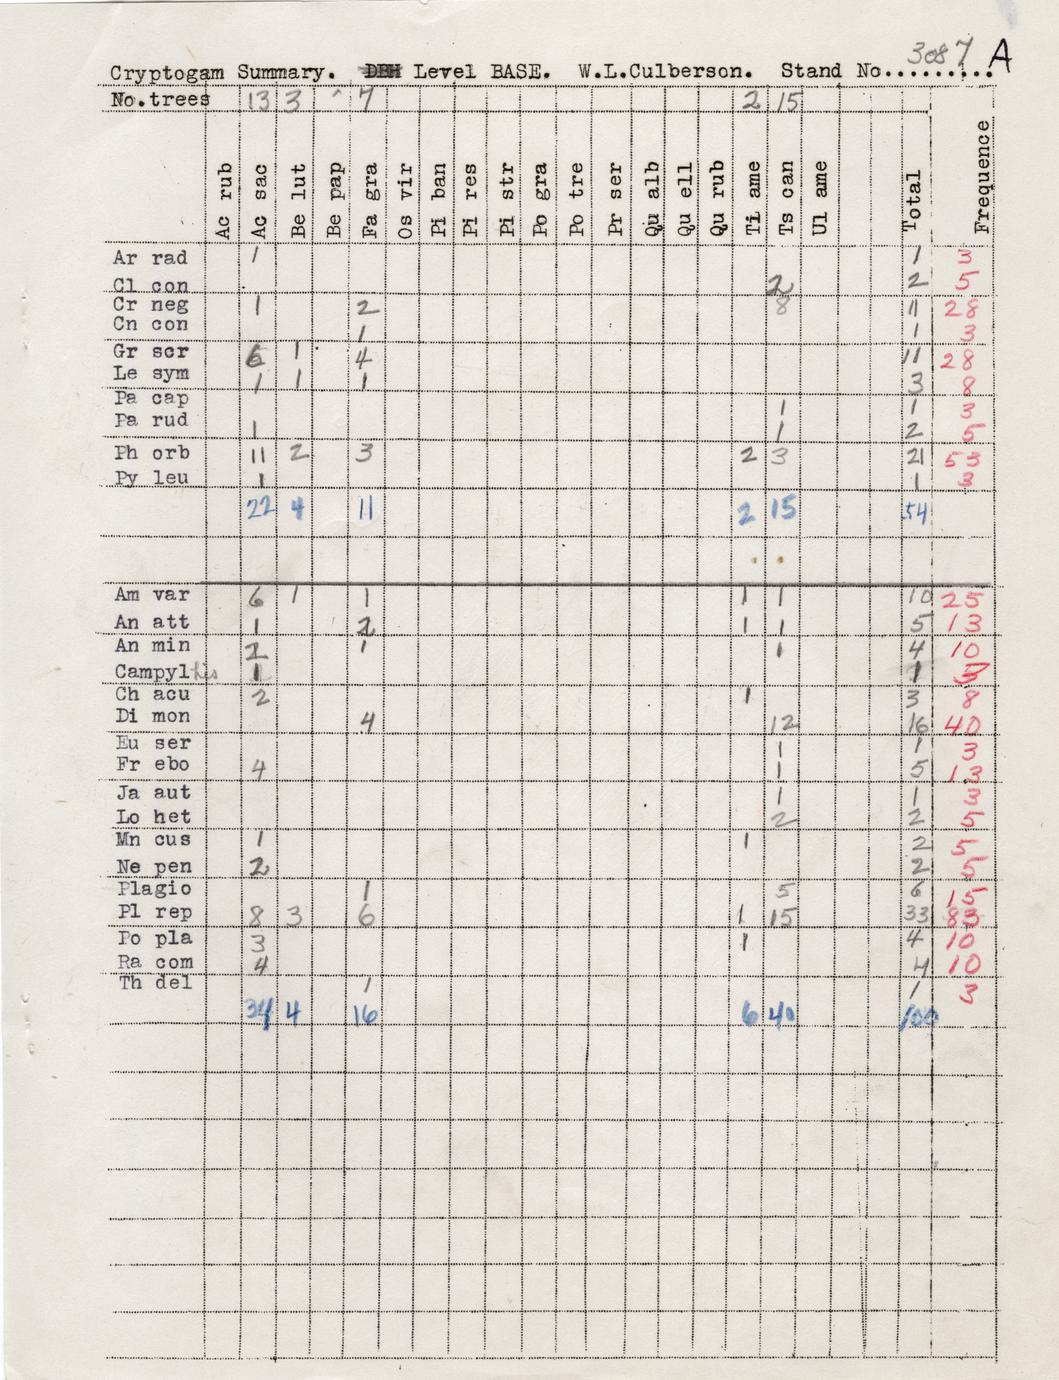 3087 A
Cryptogam Summary. DBH Level BASE. W.L.Culberson. Stand No..........
No.trees 13 3 7 2 15
Ac rub Ac sac Be lut Be pap Fa gra Os vir Pi ban Pi res Pi str Po gra Po tre Pr ser Qu alb Qu ell Qu rub Ti ame Ts can Ul ame Total Frequence
Ar rad 1 1 3
Cl con 2 2 5
Cr neg 1 2 8 11 28
Cn con 1 1 3
Gr scr 6 1 4 11 28
Le sym 1 1 1 3 8
Pa cap 1 1 3
Pa rud 1 1 2 5
Ph orb 11 2 3 2 3 21 53
Py leu 1 1 3
22 4 11 2 15 54
Am var 6 1 1 1 1 10 25
An att 1 2 1 1 5 13
An min 2 1 1 4 10
Campyl 1 1 3
Ch acu 2 1 3 8
Di mon 4 12 16 40
Eu ser 1 1 3
Fr ebo 4 1 5 13
Ja aut 1 1 3
Lo het 2 2 5
Mn cus 1 1 2 5
Ne pen 2 2 5
Plagio 1 5 6 15
Pl rep 8 3 6 1 15 33
Po pla 3 1 4 10
Ra com 4 4 10
Th del 1 1 3
34 4 16 6 40 100